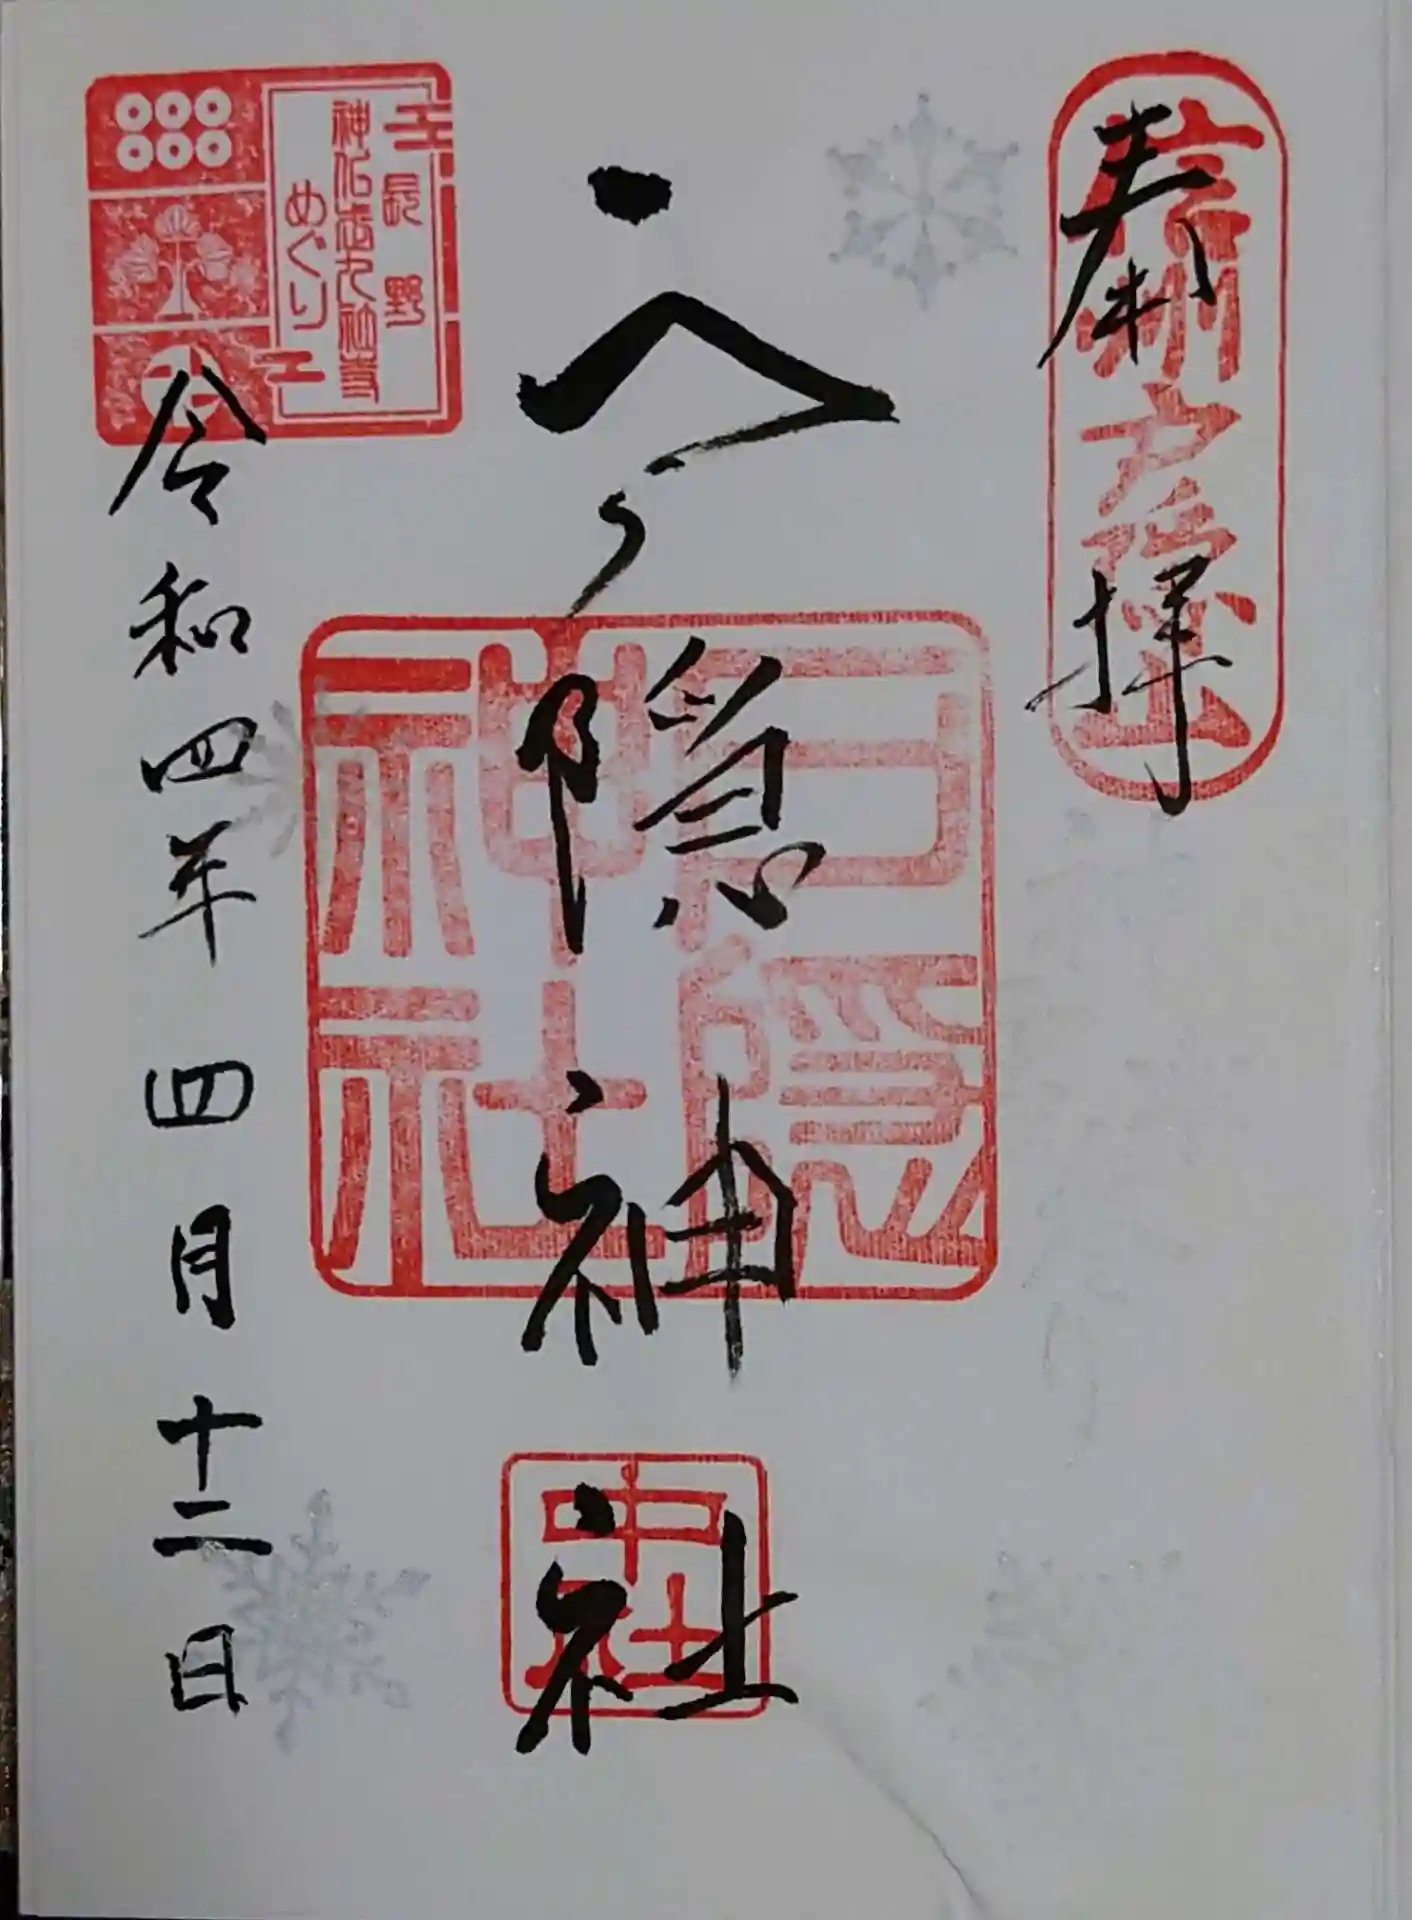 奉拝
信州戸隠山
戸隠神社
戸隠神社
中社
令和四年四月十二日
長野
めぐり